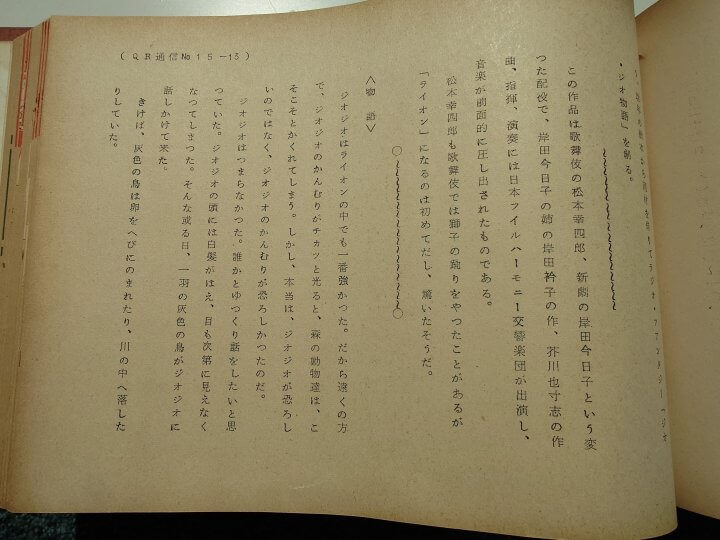 ジオ物語」を創る。
この作品は歌舞伎の松本幸四郎、新劇の岸田今日子という変
つた配役で、岸田今日子の姉の岸田衿子の作、芥川也寸志の作
曲、指揮、演奏には日本フイルハーモニー交響楽団が出演し、
音楽が前面的に圧し出されたものである。
松本幸四郎も歌舞伎では獅子の踊りをやつたことがあるが
「ライオン」になるのは初めてだし、驚いたそうだ。
＜物 語＞
ジオジオはライオンの中でも一番強かつた。だから遠くの方
で、ジオジオのかんむりがチカツと光ると、森の動物達は、こ
そこそとかくれてしまう。しかし、本当は、ジオジオが恐ろし
いのではなく、ジオジオのかんむりが恐ろしかつたのだ。
ジオジオはつまらなかつた。誰かとゆつくり話をしたいと思
つていた。ジオジオの頭には白髪がはえ、目も次第に見えなく
なつてしまつた。そんな或る日、一羽の灰色の鳥がジオジオに
話しかけて来た。
きけば、灰色の鳥は卵をへびにのまれたり、川の中へ落した
りしていた。
(QR通信No.15-13)